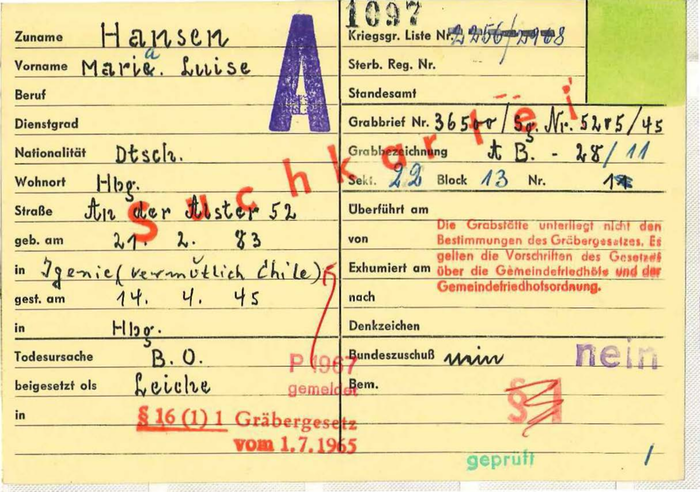 Zuname Hansen
Vorname Maria Luise
Beruf
Dienstgrad
Nationalität Dtsch.
Wohnort Hbg.
Straße An der Alster 52
geb. am 21. 2. 83
in Igenie (vermutlich Chile)
gest. am 14. 4. 45
in Hbg.
Todesursache B. O.
beigesetzt als Leiche
in
§ 16 (1) 1 Gräbergesetz
vom 1.7.1965
P 1967
gemeldet
A
Suchkartei
1097
Kriegsgr. Liste Nr.
Sterb. Reg. Nr.
Standesamt
Grabbrief Nr. 36500/Sg. Nr. 5205/45
Grabbezeichnung A B. - 28/11
Sekt. 22 Block 13 Nr.
Überführt am
von
Exhumiert am
nach
Denkzeichen
Die Grabstätte unterliegt nicht den
Bestimmungen des Gräbergesetzes. Es
gelten die Vorschriften des Gesetzes
über die Gemeindefriedhöfe und der
Gemeindefriedhofsordnung.
Bundeszuschuß nein nein
Bem.
§ 1
geprüft
1